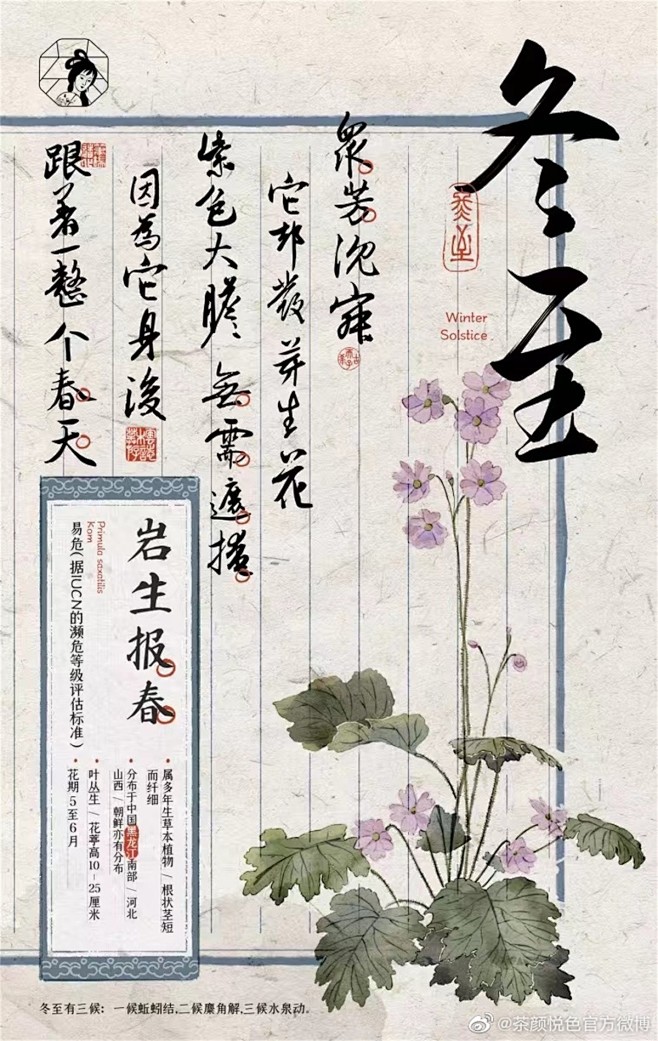 冬至
Winter
Solstice
眾芳沉寂
它却發芽生花
紫色大膽 無需遮掩
因為它身後
跟着一整个春天
岩生报春
Primula saxatilis
Kom
易危(据IUCN的濒危等级评估标准)
·属多年生草本植物/根状茎短
而纤细
·分布于中国黑龙江南部/河北
山西/朝鲜亦有分布
·叶丛生/花葶高10-25厘米
·花期5至6月
冬至有三候：一候蚯蚓结,二候麋角解,三候水泉动。
@茶颜悦色官方微博